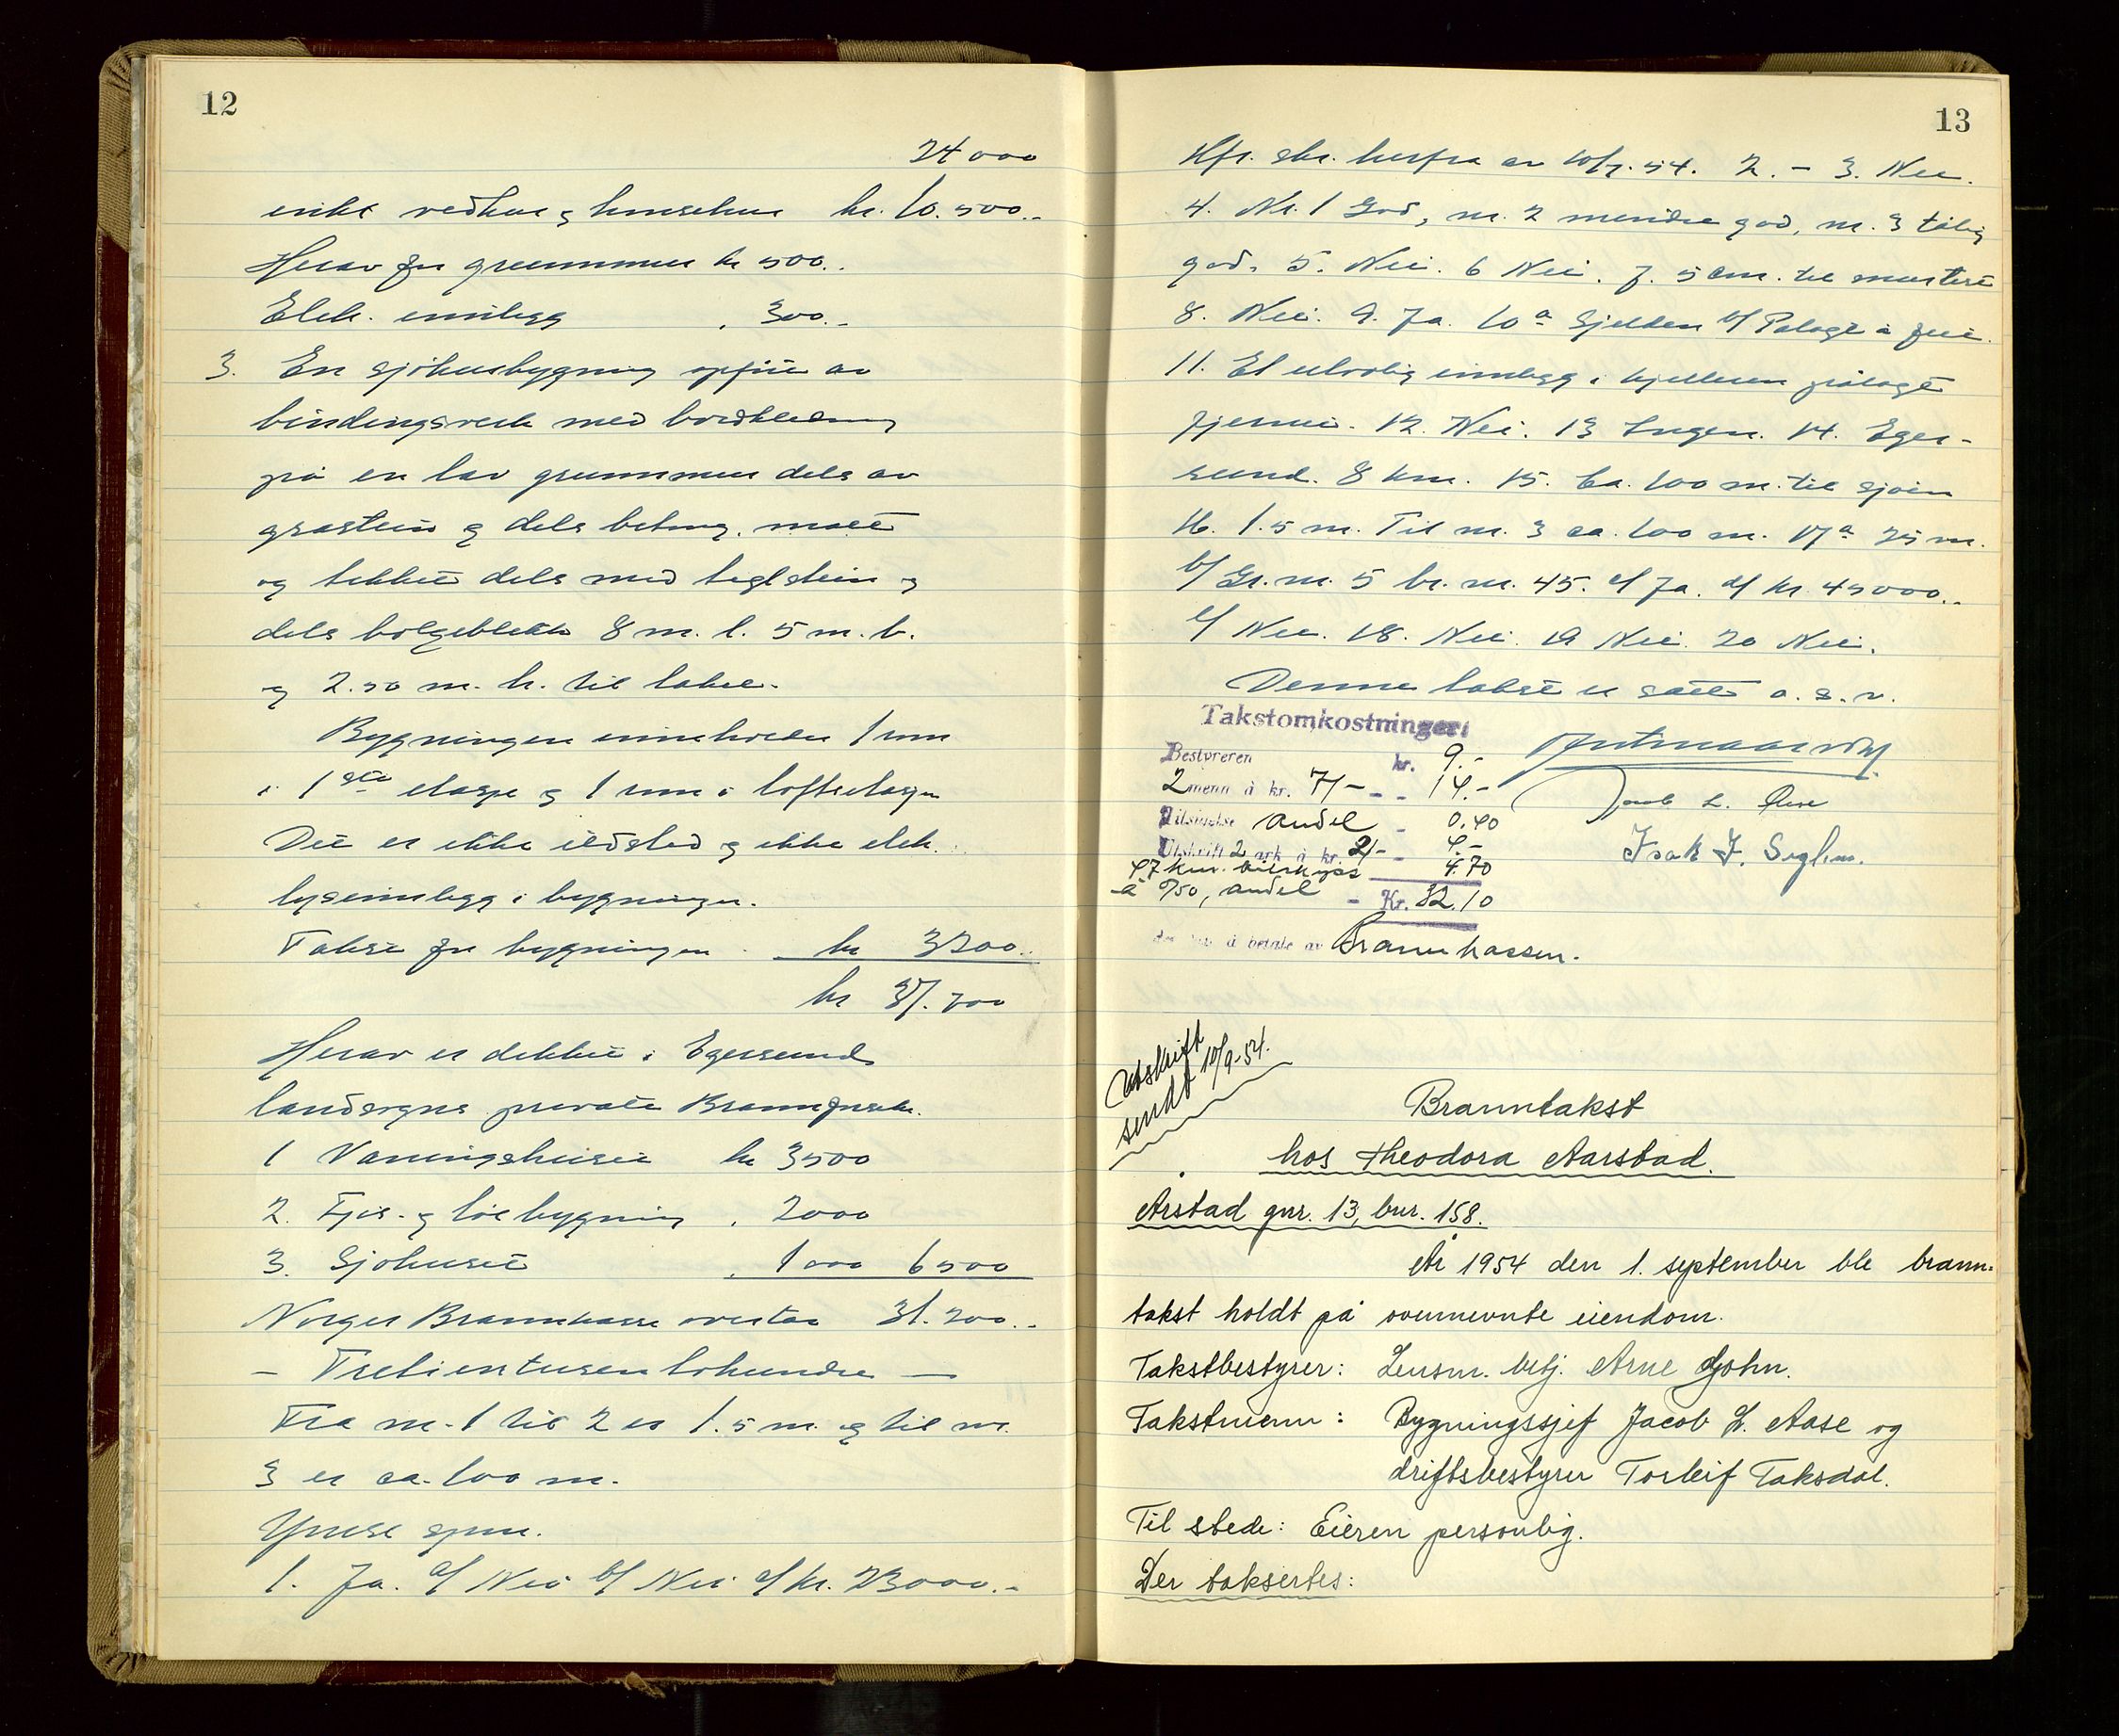 12
24 000
enkt vedhus og hønsehus kr. 10.500.-
Herav for grunnmur kr 500.-
Elek. innlegg " 300.-
3. En sjøhusbygning oppført av
bindingsverk med bordkledning
på en lav grunnmur dels av
gråstein og dels betong, malt
og tekket dels med teglstein og
dels bølgeblekk 8 m. l. 5 m. b.
og 2.50 m. h. til taket.
Bygningen inneholder 1 rum
i 1ste etasje og 1 rum i loftsetasjen
Det er ikke ildsted og ikke elek.
lysinnlegg i bygningen.
Takst for bygningen kr 3200.-
kr 37.700
Herav er dekket i Egersund
landsogns private Brannforsik.
1 Våningshuset kr 3500
2. Fjøs- og løebygning " 2000
3. Sjøhuset " 1000 6500
Norges Brannkasse overtar 31.200.-
- Trettientusentohundre -
Fra nr. 1 til 2 er 1.5 m. og til nr.
3 er ca. 100 m.
Ymse spm.
1. Ja. a/ Nei b/ Nei c/ kr. 23000.-
13
Kfr. skr. herfra av 10/7.54. 2. - 3. Nei.
4. Nr. 1 God, nr. 2 mindre god, nr. 3 tålig
god. 5. Nei. 6 Nei. 7. 5 cm. til
8. Nei. 9. Ja. 10 a Sjelden b/ Pålagt å feie.
11. Et ulovlig innlegg i kjelleren pålagt
fjernet. 12. Nei. 13 Ingen. 14. Eger-
sund. 8 km. 15. Ca. 100 m. til sjøen
16. 1.5 m. Til nr. 3 ca. 100 m. 17 a 25 m.
b/ Gr. nr. 5 br. nr. 45. c/ Ja. d/ kr 45000.-
e/ Nei. 18. Nei. 19 Nei. 20 Nei.
Denne takst er satt o. s. v.
Takstomkostninger:
Bestyreren kr. 9.-
2 menn à kr. 7/- - - 14.-
Tilsigelse andel - 0.40
Utskrift 2 ark à kr. 2/- - 4.-
47 km. bilskyss 4.70
à 0/50, andel - Kr. 32.10
å betale av Brannkassen.
Jacob L. Aase
Isak J. Seglem.
Utskrift
sendt 10/9-54.
Branntakst
hos Theodora Aarstad.
Årstad gnr. 13, bnr. 158.
År 1954 den 1. september ble brann-
takst holdt på ovennevnte eiendom.
Takstbestyrer: Lensm. betj. Arne Gjøhn.
Takstmenn: Bygningssjef Jacob L. Aase og
driftsbestyrer Torleif Taksdal.
Til stede: Eieren personlig.
Der taksertes: